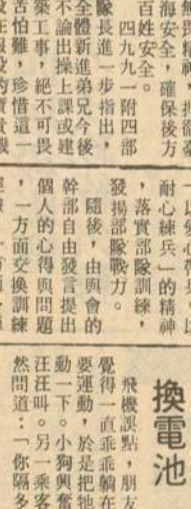 無畏精神，衛臺
海安全，確保後方
百姓安全。
四九九一附四部
隊長進一步指出，
全體新進弟兄今後
不論出操上課或建
築工事，絕不可畏
苦怕難，珍惜這一
耐心練兵」的精神
，落實部隊訓練，
發揚部隊戰力。
隨後，由與會的
幹部自由發言提出
個人的心得與問題
，一方面交換訓練
換電池
飛機誤點，朋友
覺得一直乖乖躺在
要運動，於是把牠
動一下。小狗興奮
汪汪叫。另一乘客
然問道：「你隔多